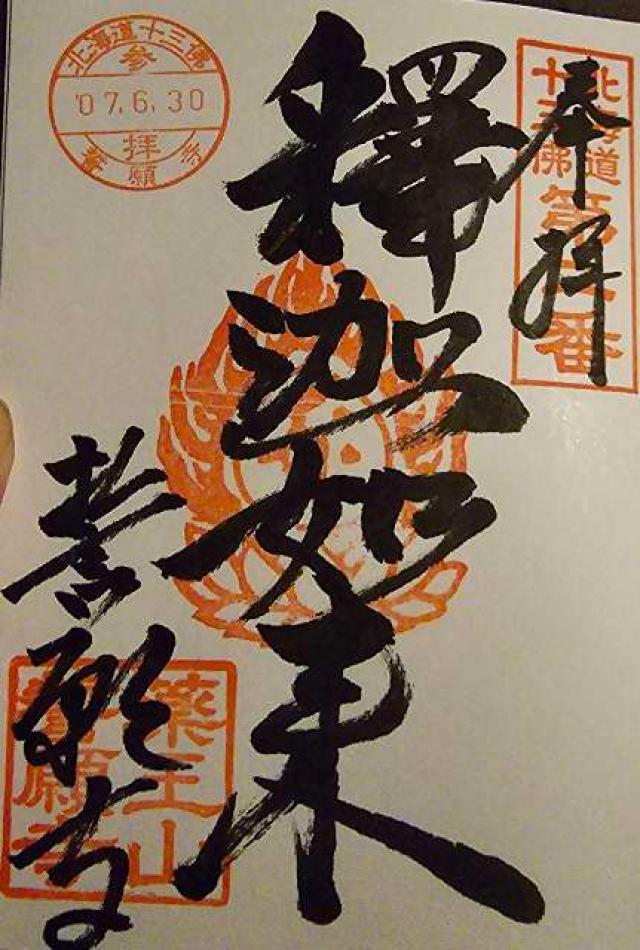 奉拝
北海道
十三佛
第二番
釋迦如来
誓願寺
薬王山
誓願寺
北海道十三佛
参
'07.6.30
拝
誓願寺